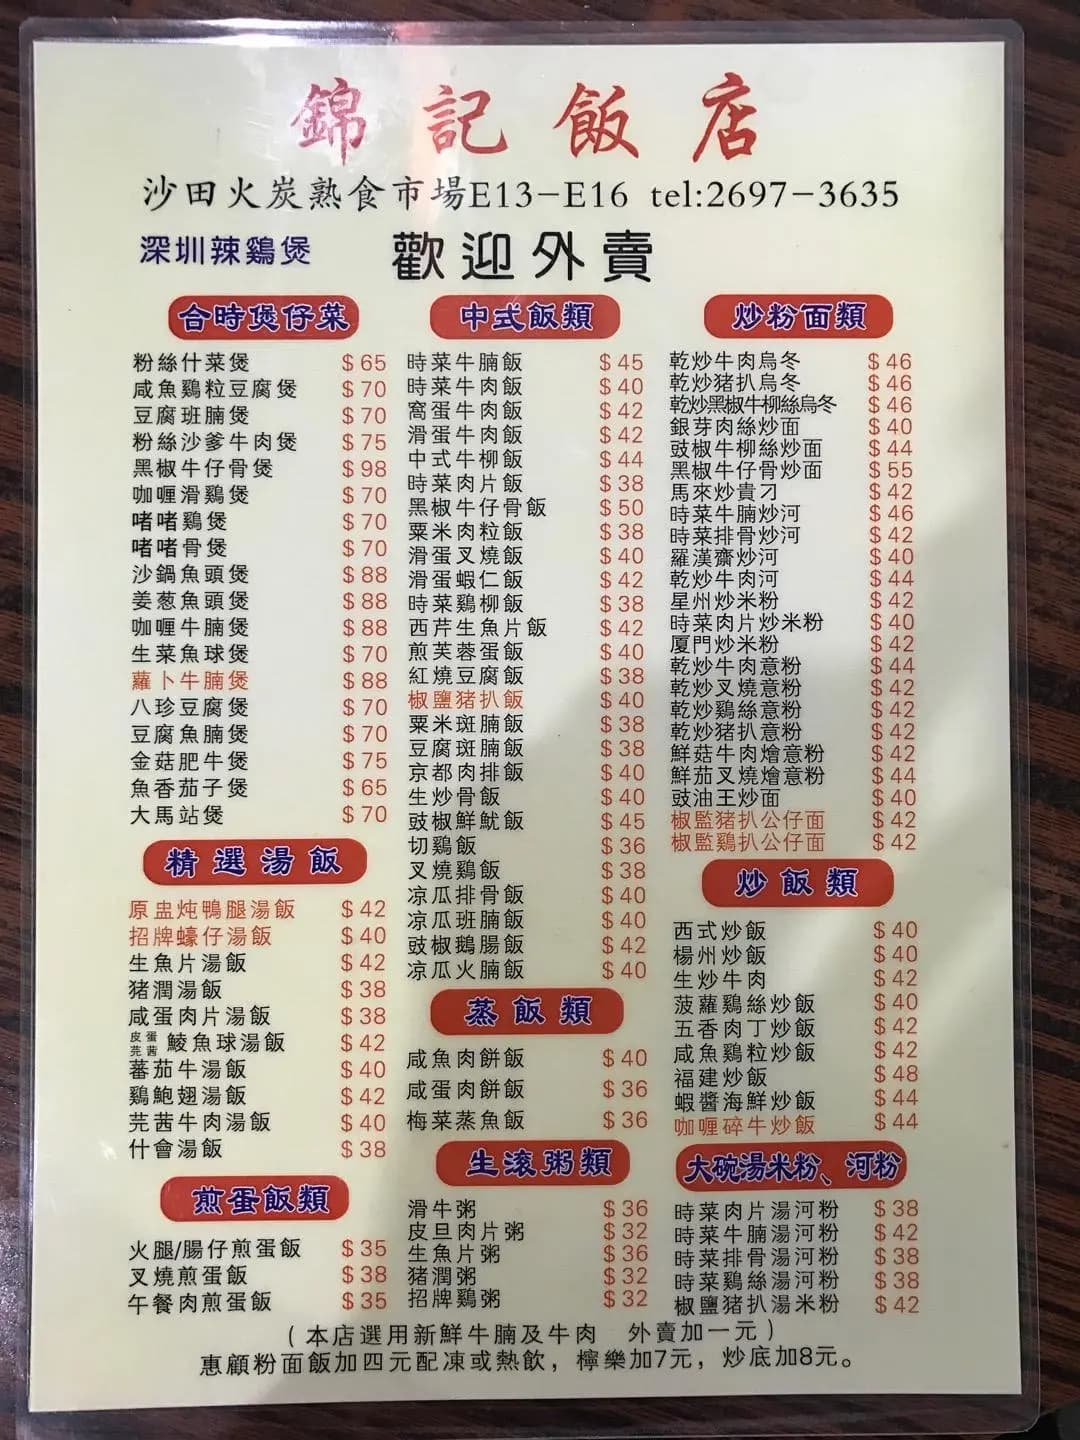 錦記飯店
沙田火炭熟食市場E13-E16 tel:2697-3635
深圳辣鷄煲 歡迎外賣
合時煲仔菜
粉絲什菜煲 $65
咸魚鷄粒豆腐煲 $70
豆腐班腩煲 $70
粉絲沙爹牛肉煲 $75
黑椒牛仔骨煲 $98
咖喱滑鷄煲 $70
啫啫鷄煲 $70
啫啫骨煲 $70
沙鍋魚頭煲 $88
姜葱魚頭煲 $88
咖喱牛腩煲 $88
生菜魚球煲 $70
蘿卜牛腩煲 $88
八珍豆腐煲 $70
豆腐魚腩煲 $70
金菇肥牛煲 $75
魚香茄子煲 $65
大馬站煲 $70
精選湯飯
原盅炖鴨腿湯飯 $42
招牌蠔仔湯飯 $40
生魚片湯飯 $42
猪潤湯飯 $38
咸蛋肉片湯飯 $38
皮蛋芫茜鯪魚球湯飯 $42
蕃茄牛湯飯 $40
鷄鮑翅湯飯 $42
芫茜牛肉湯飯 $40
什會湯飯 $38
煎蛋飯類
火腿/腸仔煎蛋飯 $35
叉燒煎蛋飯 $38
午餐肉煎蛋飯 $35
中式飯類
時菜牛腩飯 $45
時菜牛肉飯 $40
窩蛋牛肉飯 $42
滑蛋牛肉飯 $42
中式牛柳飯 $44
時菜肉片飯 $38
黑椒牛仔骨飯 $50
粟米肉粒飯 $38
滑蛋叉燒飯 $40
滑蛋蝦仁飯 $42
時菜鷄柳飯 $38
西芹生魚片飯 $42
煎芙蓉蛋飯 $40
紅燒豆腐飯 $38
椒鹽猪扒飯 $40
粟米斑腩飯 $38
豆腐斑腩飯 $38
京都肉排飯 $40
生炒骨飯 $40
豉椒鮮魷飯 $45
切鷄飯 $36
叉燒鷄飯 $38
凉瓜排骨飯 $40
凉瓜班腩飯 $40
豉椒鵝腸飯 $42
凉瓜火腩飯 $40
蒸飯類
咸魚肉餅飯 $40
咸蛋肉餅飯 $36
梅菜蒸魚飯 $36
生滚粥類
滑牛粥 $36
皮旦肉片粥 $32
生魚片粥 $36
猪潤粥 $32
招牌鷄粥 $32
炒粉面類
乾炒牛肉烏冬 $46
乾炒猪扒烏冬 $46
乾炒黑椒牛柳絲烏冬 $46
銀芽肉絲炒面 $40
豉椒牛柳絲炒面 $44
黑椒牛仔骨炒面 $55
馬來炒貴刁 $42
時菜牛腩炒河 $46
時菜排骨炒河 $42
羅漢齋炒河 $40
乾炒牛肉河 $44
星州炒米粉 $42
時菜肉片炒米粉 $40
厦門炒米粉 $42
乾炒牛肉意粉 $44
乾炒叉燒意粉 $42
乾炒鷄絲意粉 $42
乾炒猪扒意粉 $42
鮮菇牛肉燴意粉 $42
鮮茄叉燒燴意粉 $44
豉油王炒面 $40
椒監猪扒公仔面 $42
椒監鷄扒公仔面 $42
炒飯類
西式炒飯 $40
楊州炒飯 $40
生炒牛肉 $42
菠蘿鷄絲炒飯 $40
五香肉丁炒飯 $42
咸魚鷄粒炒飯 $42
福建炒飯 $48
蝦醬海鮮炒飯 $44
咖喱碎牛炒飯 $44
大碗湯米粉、河粉
時菜肉片湯河粉 $38
時菜牛腩湯河粉 $42
時菜排骨湯河粉 $38
時菜鷄絲湯河粉 $38
椒鹽猪扒湯米粉 $42
(本店選用新鮮牛腩及牛肉 外賣加一元)
惠顧粉面飯加四元配凍或熱飲，檸樂加7元，炒底加8元。